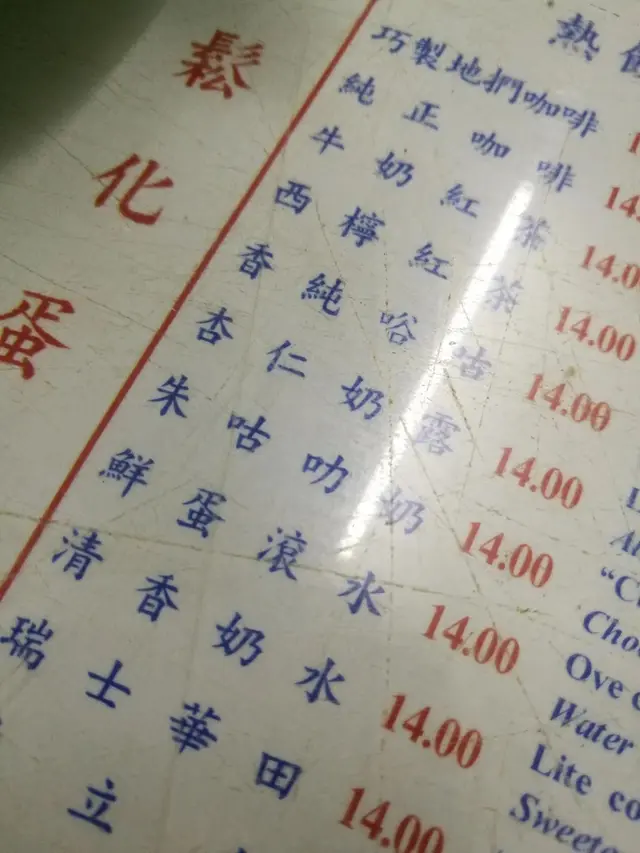 鬆化蛋
熱
巧製地捫咖啡
純正咖啡 14.
牛奶紅茶 14.0
西檸紅茶 14.00
香純哈咕 14.00
杏仁奶露 14.00
朱咕叻奶 14.00
鮮蛋滾水 14.00
清香奶水 14.00
瑞士華田 14.00
立
Choc
Ove
Water
Lite co
Sweete